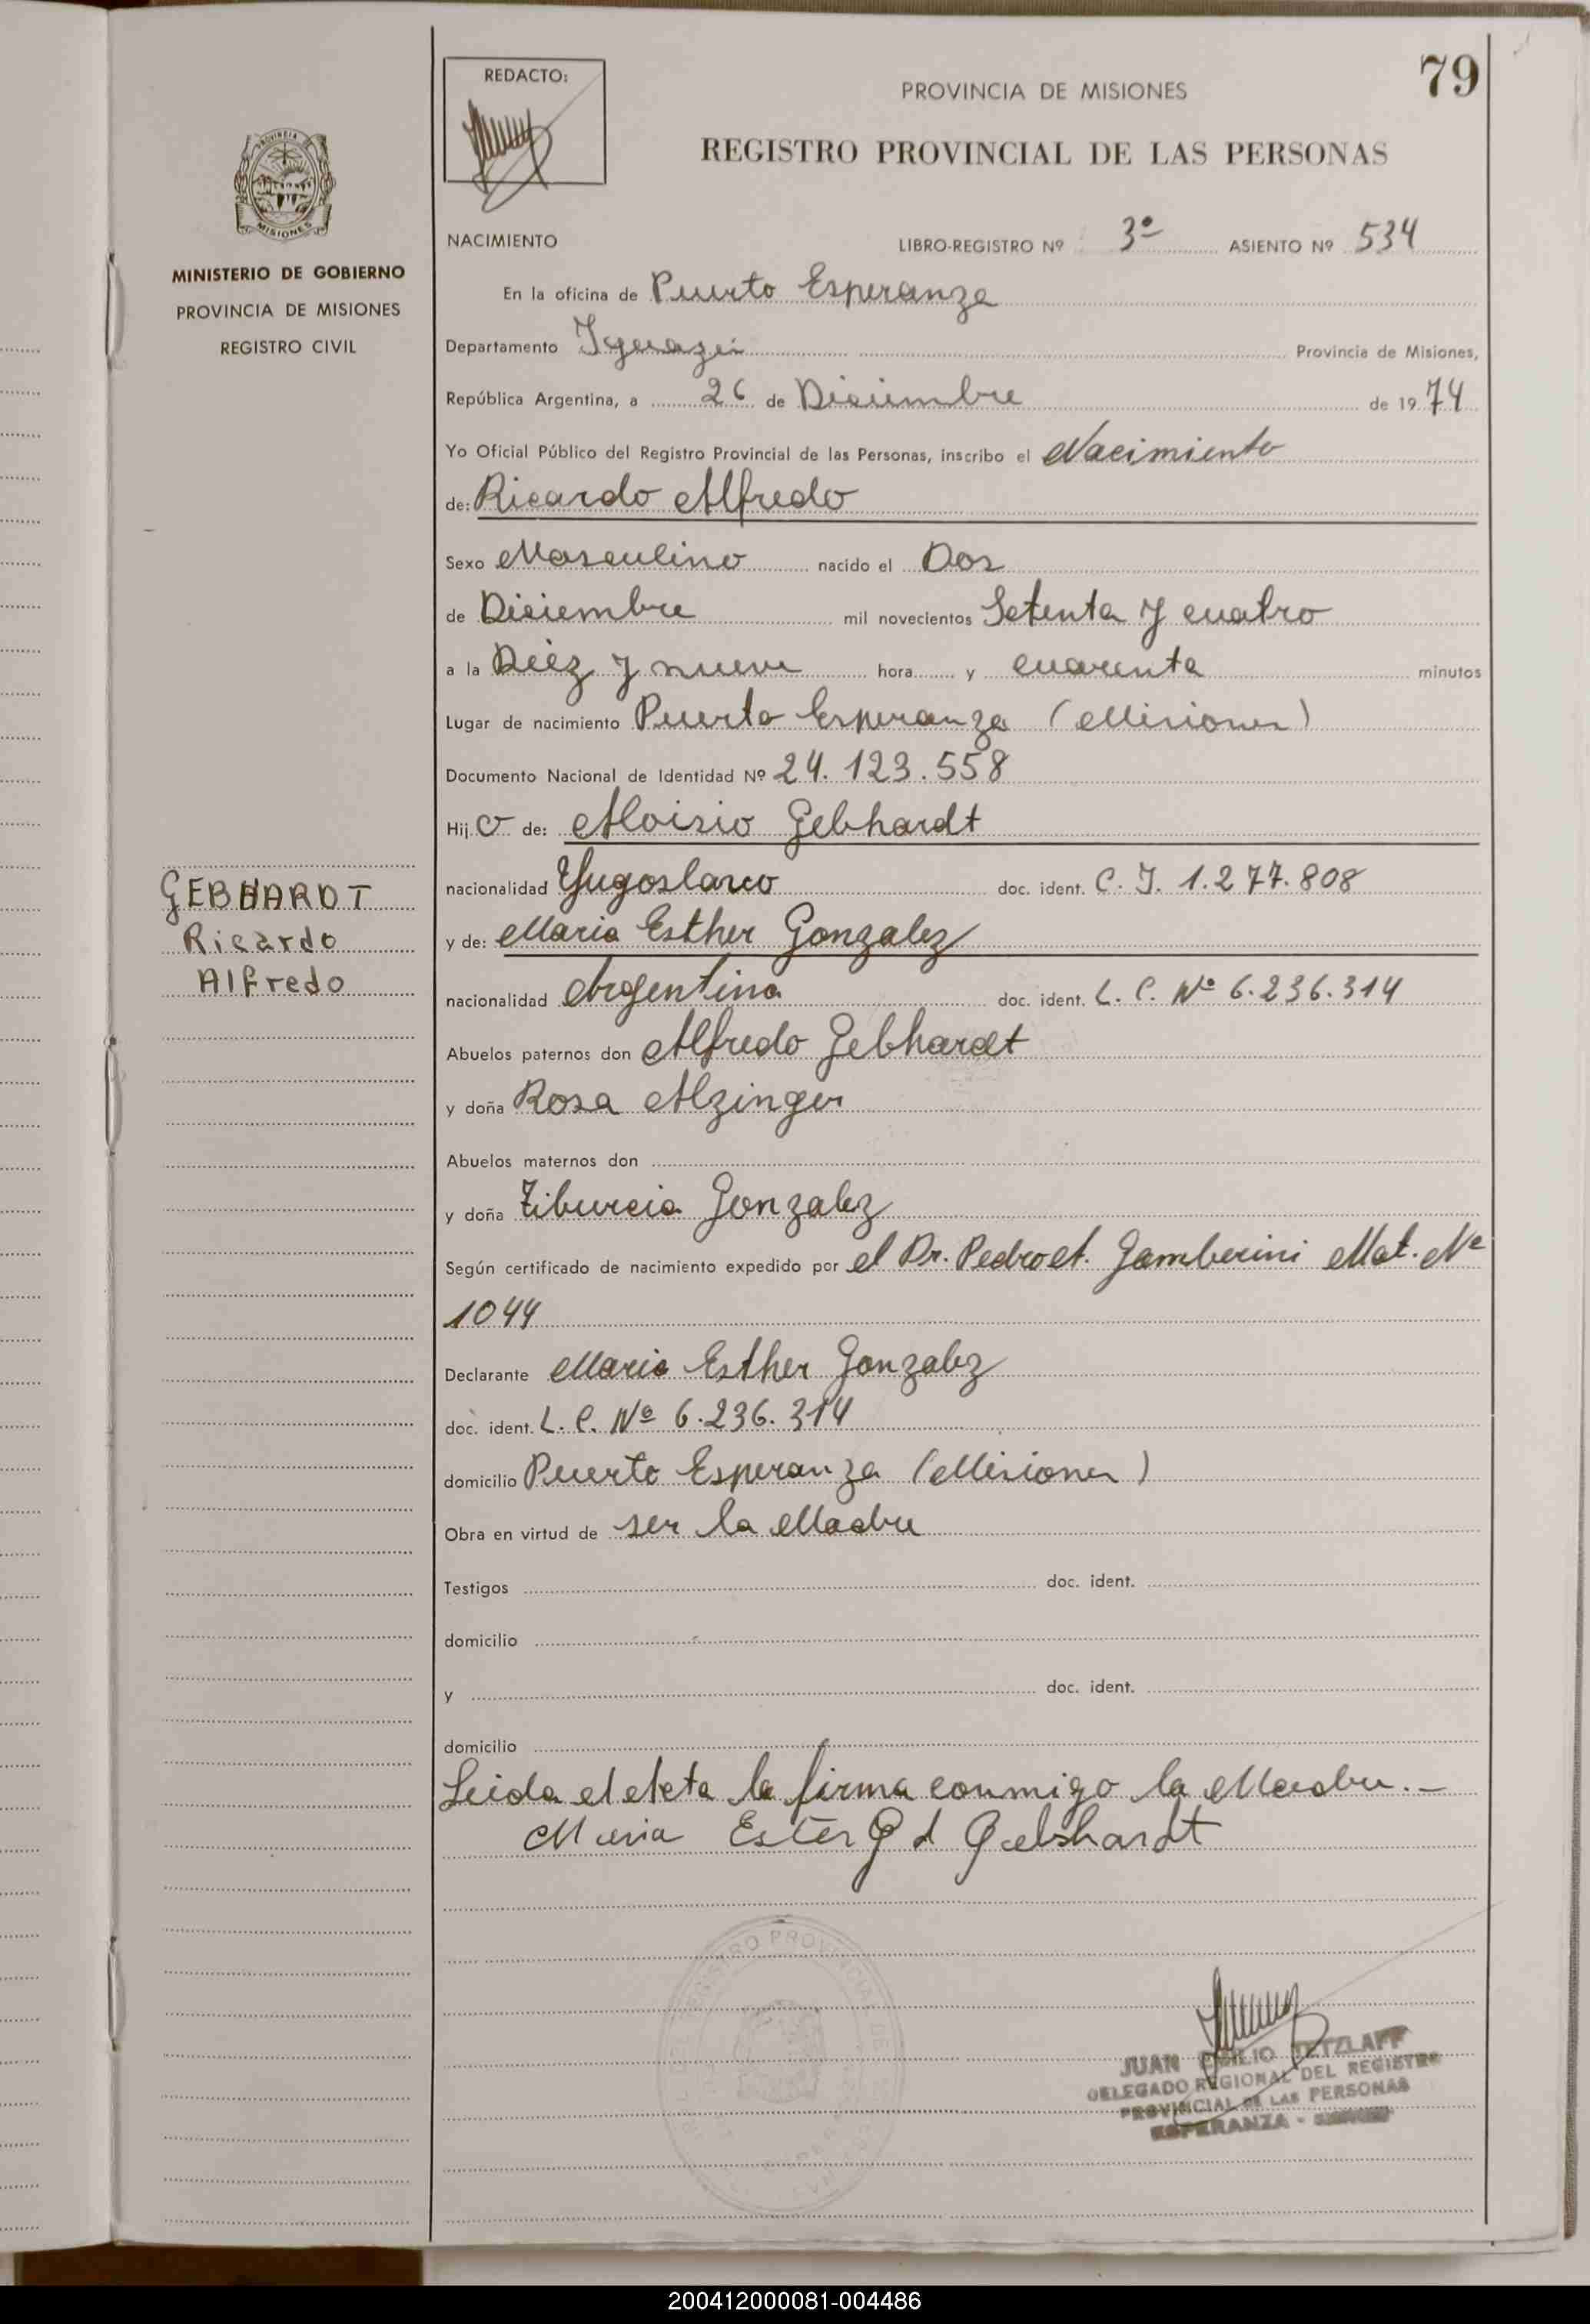 79
REDACTO:
PROVINCIA DE MISIONES
REGISTRO PROVINCIAL DE LAS PERSONAS
PROVINCIA DE
MISIONES
MINISTERIO DE GOBIERNO
PROVINCIA DE MISIONES
REGISTRO CIVIL
GEBHARDT
Ricardo
Alfredo
NACIMIENTO LIBRO-REGISTRO Nº 3º ASIENTO Nº 534
En la oficina de Puerto Esperanza
Departamento Iguazú Provincia de Misiones,
República Argentina, a 26 de Diciembre de 1974
Yo Oficial Público del Registro Provincial de las Personas, inscribo el Nacimiento
de: Ricardo Alfredo
Sexo Masculino nacido el Dos
de Diciembre mil novecientos Setenta y cuatro
a la Diez y nueve hora y cuarenta minutos
Lugar de nacimiento Puerto Esperanza (Misiones)
Documento Nacional de Identidad Nº 24.123.558
Hijo de: Aloisio Gebhardt
nacionalidad Yugoslavo doc. ident. C. I. 1.277.808
y de: Maria Esther Gonzalez
nacionalidad Argentina doc. ident. L. C. Nº 6.236.314
Abuelos paternos don Alfredo Gebhardt
y doña Rosa Alzinger
Abuelos maternos don
y doña Tiburcia Gonzalez
Según certificado de nacimiento expedido por el Dr. Pedro A. Gamberini Mat. Nº
1044
Declarante Maria Esther Gonzalez
doc. ident. L. C. Nº 6.236.314
domicilio Puerto Esperanza (Misiones)
Obra en virtud de ser la Madre
Testigos doc. ident.
domicilio
y doc. ident.
domicilio
Leida el Acta la firma conmigo la Madre.-
Maria Ester G d Gebhardt
REGISTRO PROVINCIAL DE
JUAN EMILIO TETZLAFF
DELEGADO REGIONAL DEL REGISTRO
PROVINCIAL DE LAS PERSONAS
ESPERANZA -
200412000081-004486